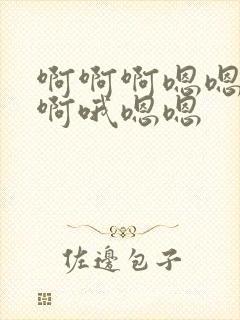 啊啊啊嗯嗯
啊哦嗯嗯
佐邊包子